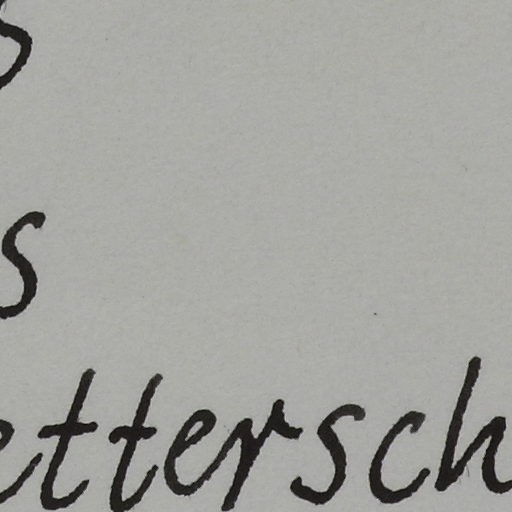 s
s
ettersch